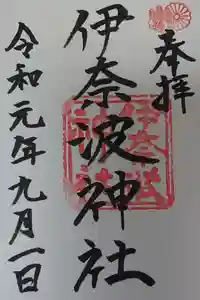 奉拝
伊奈波神社
令和元年九月一日